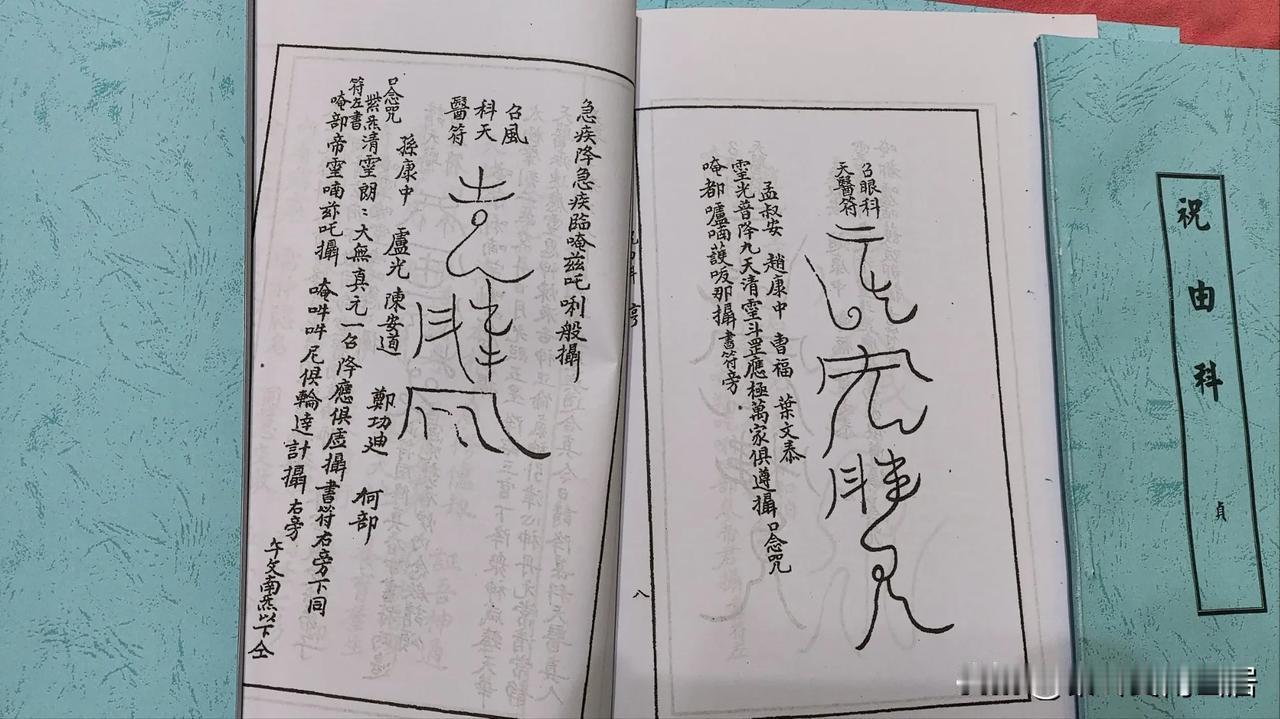 召眼科
天醫符
孟叔安 趙康中 曹福 葉文泰
靈光普降九天清靈斗罡應極萬家俱遵攝 口念咒
唵都嚧喃護㕹那攝 書符旁
八
急疾降急疾臨唵茲吒唎般攝
召風
科天
醫符
孫康中 盧光 陳安道 鄭功迪 何部
口念咒
紫炁清靈朗〻大無真元一召降應俱虛攝 書符右旁下同
符左書
唵部帝靈喃䒵吒攝 唵吽吽尼俱輪達計攝 右旁
午文南炁以下仝
祝由科
貞